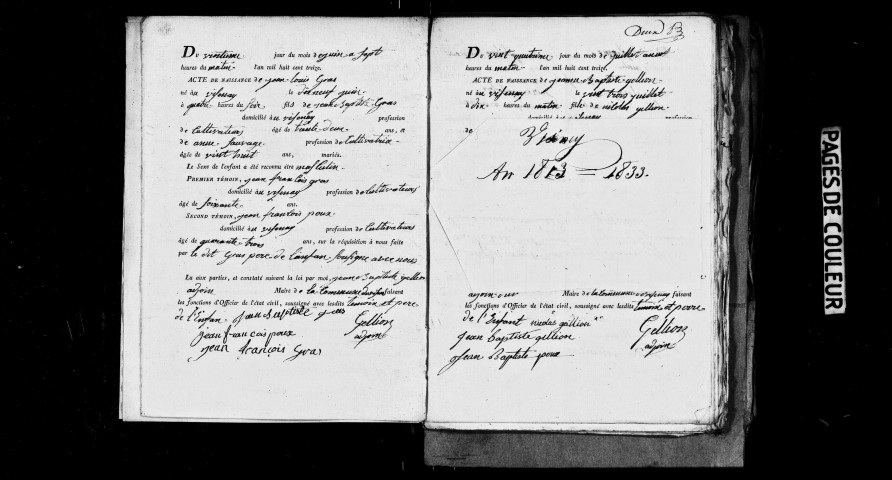 Du vintieme jour du mois de juin a sept
heures du matin l'an mil huit cent treize.
ACTE DE NAISSANCE de jean louis Gras
né au visenay le dixneuf juin
à quatre heures du soir fils de jean baptiste Gras
domicilié au visenay profession
de Cultivateurs âgé de trente deux ans, et
de anne Sauvage profession de Cultivatrix
âgée de vint huit ans, mariés.
Le Sexe de l'enfant a été reconnu être masculin.
PREMIER TÉMOIN, jean francois gras
domicilié au visenay profession de Cultivateurs
âgé de soixante ans.
SECOND TÉMOIN, jean francois poux
domicilié au visenay profession de Cultivateurs
âgé de quarante trois ans, sur la réquisition à nous faite
par le dit Gras pere de l'enfan soussigne avec nous
Lu aux parties, et constaté suivant la loi par moi, jean Baptiste gellion
adjoin Maire de la Commune faisant
les fonctions d'Officier de l'état civil, soussigné avec lesdits temoin et pere
de l'Enfan. jean baptiste gras
Gellion
adjoin
jean francois poux
jean françois Gras
Deux B
Du vint quatrieme jour du mois de juillet an mil
heures du matin l'an mil huit cent treize.
ACTE DE NAISSANCE de jeanne Baptiste gellion
né au visenay le vint trois juillet
à dix heures du matin fils de nicolas gellion
domicilié au profession
de
An 1813 = 1833.
adjoin Maire de la Commune faisant
les fonctions d'Officier de l'état civil, soussigné avec lesdits temoin et perre
de l'Enfant nicolas gellion
Gellion
adjoin
jean Baptiste gellion
jean Baptiste poux
PAGES DE COULEUR